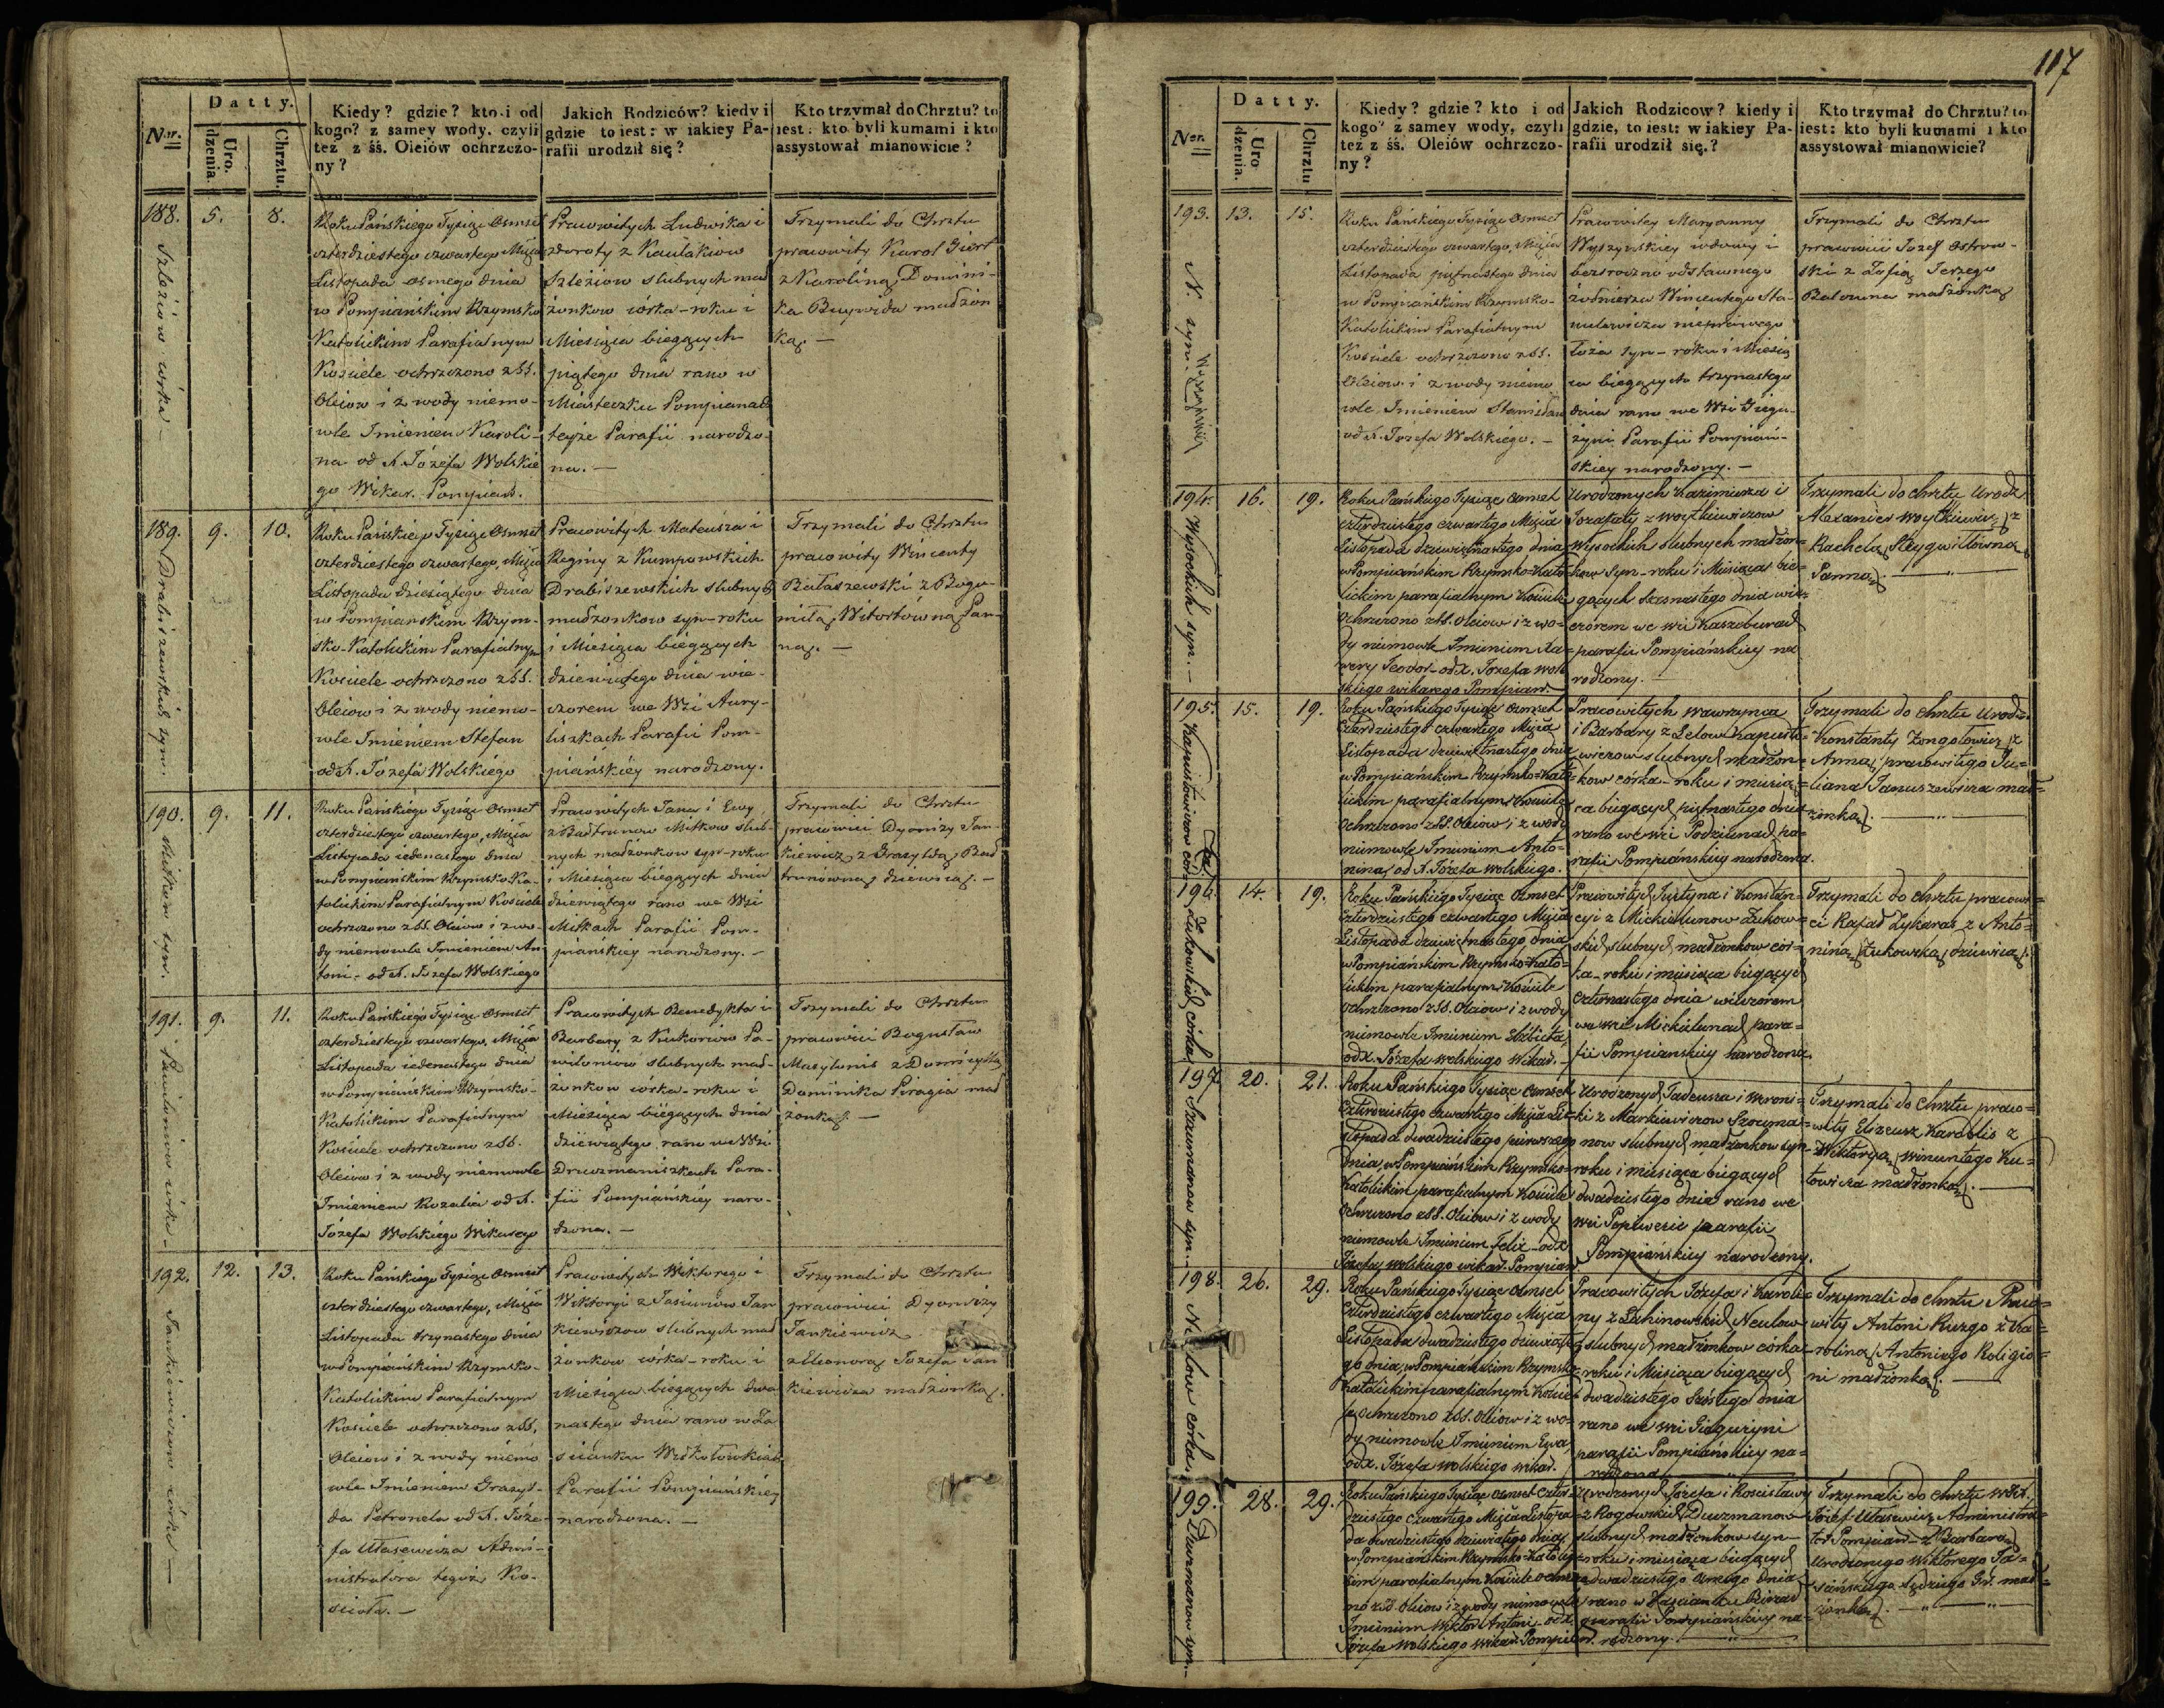 117
Datty.
Ner.
Uro.
dzenia.
Chrztu.
Kiedy? gdzie? kto i od
kogo? z samey wody, czyli
też z śś. Oleiów ochrzczo-
ny?
Jakich Rodziców? kiedy i
gdzie to iest: w iakiey Pa-
rafii urodził się?
Kto trzymał do Chrztu? to
iest: kto byli kumami i kto
assystował mianowicie?
188.
Szleżiow córka –
5.
8.
Roku Pańskiego Tysiąc Osmset
czterdziestego czwartego Mięsia
Listopada osmego dnia
w Pompiańskim Rzymsko
Katolickim Parafialnym
Kościele ochrzczono z SS.
Oleiow i z wody niemo-
wle Imieniem Karoli-
na od X. Józefa Wolskie
go Wikar. Pompian.
Pracowitych Ludwika i
Doroty z Kaulakiow
Szleżiow slubnych mał
żonkow córka – roku i
Miesiąca bieggących
piątego dnia rano w
Miasteczku Pompianach
teyże Parafii narodzo-
na. –
Trzymali do Chrztu
pracowity Karol
z Karoliną Domini-
ka Buywida małżon
ką. –
189.
Drabiszewskich syn.
9.
10.
Roku Pańskiego Tysiąc Osmset
czterdziestego czwartego, Mięsia
Listopada dziesiątego dnia
w Pompiańskim Rzym-
sko-Katolickim Parafialnym
Kościele ochrzczono z SS.
Oleiow i z wody niemo-
wle Imieniem Stefan
od X. Józefa Wolskiego
Pracowitych Mateusza i
Reginy z Kumpowskich
Drabiszewskich slubnych
małżonkow syn – roku
i Miesiąca biegących
dziewiątego dnia wie-
czorem we Wsi Aury-
liszkach Parafii Pom-
piańskiéy narodzony.
Trzymali do Chrztu
pracowity Wincenty
Bałaszewski z Bogu-
miłą Witortowną Pan-
ną. –
190.
Mitkow syn.
9.
11.
Roku Pańskiego Tysiąc Osmset
czterdziestego czwartego, Mięsia
Listopada iedenastego dnia
w Pompiańskim Rzymsko Ka-
tolickim Parafialnym Kościele
ochrzczono z SS. Oleiow i z wo-
dy niemowle Imieniem An
toni – od X. Józefa Wolskiego
Pracowitych Jana i Ewy
z Bałtrunow Mitkow slub-
nych małżonkow syn – roku
i Miesiąca biegących dnia
dziewiątego rano we Wsi
Mitkach Parafii Pom-
piańskiey narodzony. –
Trzymali do Chrztu
pracowici Dyonizy Jan-
kiewicz z Grasyldą Bał
trunowną dziewicą. –
191.
Pawiloniow córka –
9.
11.
Roku Pańskiego Tysiąc Osmset
czterdziestego czwartego, Mięsia
Listopada iedenastego dnia
w Pompiańskim Rzymsko-
Katolickim Parafialnym
Kościele ochrzczono z SS.
Oleiow i z wody niemowle
Imieniem Rozalia od X.
Józefa Wolskiego Wikarego
Pracowitych Benedykta i
Barbary z Kukoriow Pa-
wiloniow slubnych mał-
żonkow córka – roku i
Miesiąca biegących dnia
dziewiątego rano we Wsi
Druzmaniszkach Para-
fii Pompiańskiéy naro-
dzona. –
Trzymali do Chrztu
pracowici Bogusław
Masylunis z Domicyllą
Dominika Piragia mał
żonką. –
192.
Jankiewiczow córka –
12.
13.
Roku Pańskiego Tysiąc Osmset
czterdziestego czwartego, Mięsia
Listopada trzynastego dnia
w Pompiańskim Rzymsko-
Katolickim Parafialnym
Kościele ochrzczono z SS,
Oleiow i z wody niemo
wle Imieniem Grasyl-
da Petronela od X. Józe-
fa Ułasewicza Admi-
nistratora tegoż Ko-
scioła. –
Pracowitych Wiktorego i
Wiktoryi z Jasiunow Jan
kiewiczow slubnych mał
żonkow córka – roku i
Miesiąca biegących dwu
nastego dnia rano w Za
scianku
Parafii Pompiańskiey
narodzona. –
Trzymali do Chrztu
pracowici Dyonizy
Jankiewicz
z Eleonorą Jozefa Jan
kiewicza małżonką.
Datty.
Ner.
Uro
dzenia.
Chrztu
Kiedy? gdzie? kto i od
kogo? z samey wody, czyli
też z śś. Oleiów ochrzczo-
ny?
Jakich Rodzicow? kiedy i
gdzie, to iest: w iakiey Pa-
rafii urodził się.?
Kto trzymał do Chrztu? to
iest: kto byli kumami i kto
assystował mianowicie?
193.
N. syn.
13.
15.
Roku Pańskiego Tysiąc Osmset
czterdziestego czwartego, Mięsia
Listopada piętnastego dnia
w Pompiańskim Rzymsko-
Katolickim Parafialnym
Kościele ochrzczono z SS.
Oleiow i z wody niemo
wle Imieniem Stanisław
od X. Józefa Wolskiego. –
Pracowitey Maryanny
Wyszynskiey wdowy i
bezsroczno odstawnego
żołnierza Wincentego Sta-
nulewicza nieprawego
łoża syn – roku i Miesią
ca biegących trzynastego
dnia rano we Wsi Giegu-
żyni Parafii Pompiań-
skiey narodzony. –
Trzymali do Chrztu
pracowici Jozef Ostrow-
ski z Zofią Jerzego
Balowna małżonką
194.
Wysockich syn. –
16.
19.
Roku Pańskiego Tysiąc Osmset
czterdziestego czwartego Mięsia
Listopada dziewiętnastego dnia
w Pompiańskim Rzymsko=Kato=
lickim parafialnym Kościele
ochrzczono z SS. Oleiow i z wo=
dy niemowle Imieniem Xa=
wery Teodor – od X. Jozefa Wol=
skiego wikarego Pompian. –
Urodzonych Kazimierza i
Jozafaty z Woytkiewiczow
Wysockich slubnych małżon=
kow Syn – roku i Miesiąca bie=
gących Szesnastego dnia wie=
czórem we wsi Kaszeburach
parafii Pompiańskiey na
rodzony. –
Trzymali do chrztu Urodz.
Alexander Woytkiewicz z
Rachelą Steygwiłłowną
Panną. –
195.
15.
19.
Roku Pańskiego Tysiąc Osmset
czterdziestego czwartego Mięsia
Listopada dziewiętnastego dnia
w Pompiańskim Rzymsko=Kato=
lickim parafialnym Kościele
ochrzczono z SS. Oleiow i z wody
niemowle Imieniem Anto=
nina od X. Józefa Wolskiego.
Pracowitych Wawrzynca
i Barbary z Lelow
wiczow slubnych małżon=
kow córka – roku i miesią=
ca biegących piętnastego dnia
rano we wsi Podziunach pa=
rafii Pompiańskiey narodzona.
Trzymali do chrztu Urodz.
Konstanty Zongołowicz z
Anną pracowitego Ju=
liana Januszewicza mał=
żonką. –
196.
Żukowskich córka
14.
19.
Roku Pańskiego Tysiąc Osmset
czterdziestego czwartego Mięsia
Listopada dziewiętnastego dnia
w Pompiańskim Rzymsko=Kato=
lickim parafialnym Kościele
ochrzczono z SS. Oleiow i z wody
niemowle Imieniem Elżbieta
od X. Józefa Wolskiego Wikar. –
Pracowitych Justyna i Konstan=
cyi z Mickielunow Żukow=
skich slubnych małżonkow cor=
ka – roku i miesiąca biegących
czternastego dnia wieczorem
we wsi Mickielunach para=
fii Pompianskiey narodzona.
Trzymali do chrztu pracowi=
ci Rafał Zykaras z Anto=
niną Żukowską dziewicą.
197.
Szaumanow syn. –
20.
21.
Roku Pańskiego Tysiąc Osmset
czterdziestego czwartego Mięsia Lis=
topada dwadziestego pierwszego
dnia, w Pompiańskim Rzymsko=
Katolickim parafialnym Kościele
ochrzczono z SS. Oleiow i z wody
niemowle Imieniem Felix – od X.
Józefa Wolskiego wikar. Pompian.
Urodzonych Tadeusza i Weroni=
ki z Markiewiczow
now slubnych małżonkow syn –
roku i miesiąca biegących
dwadziestego dnia rano we
wsi Popiwesie parafii
Pompiańskiey narodzony.
Trzymali do chrztu praco=
wity Elizeusz Karoblis z
Wiktoryą Wincentego Ku=
towicza małżonką. –
198.
córka.
26.
29.
Roku Pańskiego Tysiąc Osmset
czterdziestego czwartego Mięsia
Listopada dwadziestego dziewiąte
go dnia, w Pompiańskim Rzymsko=
Katolickim parafialnym Kościele
ochrzczono z SS. Oleiow i z wo=
dy niemowle Imieniem Ewa
od X. Józefa Wolskiego wikar.
Pracowitych Józefa i Karoli=
ny z Lachinowskich Neulow
slubnych małżonkow córka
roku i Miesiąca biegących
dwadziestego Szóstego dnia
rano we wsi Gieguzyni
parafii Pompiańskiey na=
rodzona.
Trzymali do chrztu Praco=
wity Antoni Kuzgo z Ka=
roliną Antoniego Religio=
ni małżonką. –
199.
Dauzmanow syn. –
28.
29.
Roku Pańskiego Tysiąc Osmset czter=
dziestego czwartego Mięsia Listopa=
da dwadziestego dziewiątego dnia
w Pompiańskim Rzymsko=Katolic=
kim parafialnym Kościele ochrzczo=
no z SS. Oleiow i z wody niemowle
Imieniem Wiktor Antoni – od X.
Józefa Wolskiego wikar. Pompian.
Urodzonych Józefa i Kościsławy
z Rogowskich Dauzmanow
slubnych małżonkow syn –
roku i miesiąca biegących
dwadziestego osmego dnia
rano w Zasciankę
parafii Pompiańskiey na=
rodzony. –
Trzymali do chrztu
Józef Ułasewicz Administra=
tor Pompian. – z Barbarą
Urodzonego Wiktorego Ja=
sińskiego Sędziego Gr. mał=
żonką. –